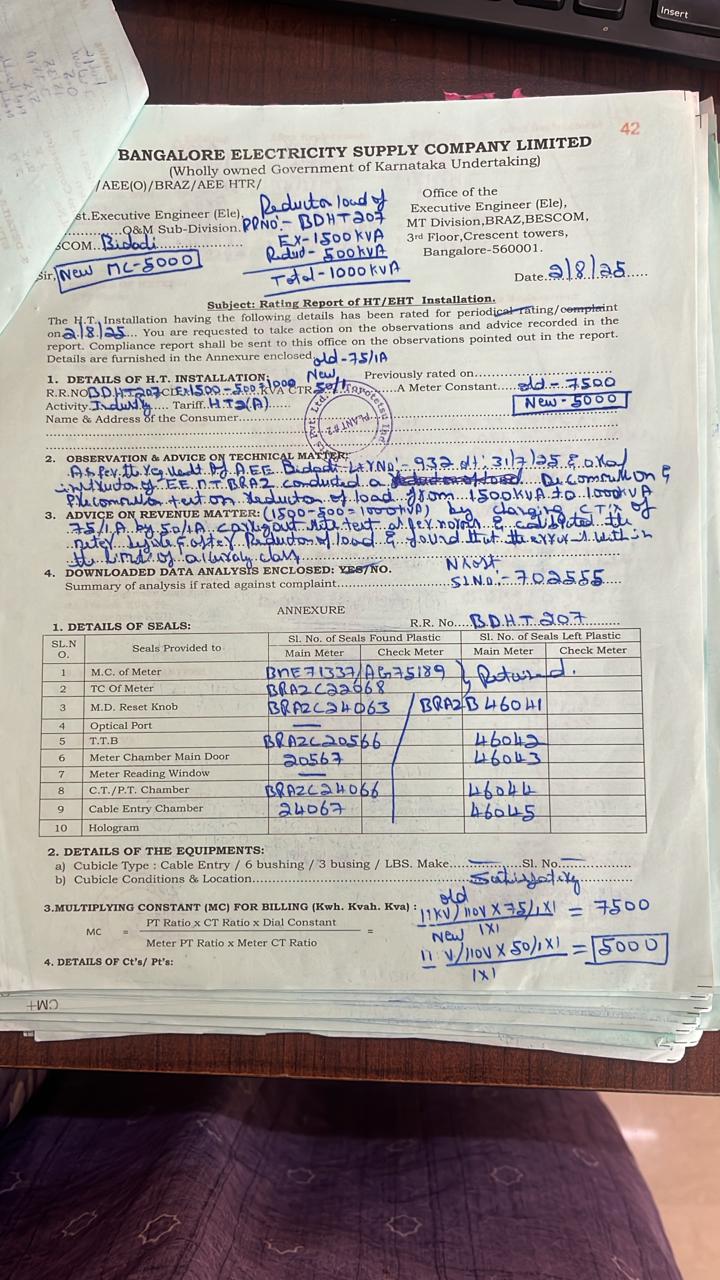 Insert
42
BANGALORE ELECTRICITY SUPPLY COMPANY LIMITED
(Wholly owned Government of Karnataka Undertaking)
/AEE(O)/BRAZ/AEE HTR/
Reduction load of
RRNO:- BDHT207
EX-1500 KVA
Redud- 500KVA
Total-1000 KVA
st.Executive Engineer (Ele),
O&M Sub-Division.
SCOM..Bidadi
Sir, New MC-5000
Office of the
Executive Engineer (Ele),
MT Division,BRAZ,BESCOM,
3rd Floor,Crescent towers,
Bangalore-560001.
Date. 2/8/25
Subject: Rating Report of HT/EHT Installation.
The H.T. Installation having the following details has been rated for periodical rating/complaint
on 2/8/25 You are requested to take action on the observations and advice recorded in the
report. Compliance report shall be sent to this office on the observations pointed out in the report.
Details are furnished in the Annexure enclosed old-75/1A
1. DETAILS OF H.T. INSTALLATION: New Previously rated on
R.R.NO BDHT207 EX1500-500=1000 KVA CTR 50/1 A Meter Constant old-7500
Activity Industry Tariff. HT2(A) New-5000
Name & Address of the Consumer
PLANT # 2
2. OBSERVATION & ADVICE ON TECHNICAL MATTER:
As per the req A.EE. Bidadi LtrNo:- 932 dt: 31/7/25 & oral
of EE MT BRAZ conducted a &
test on reduction of load from 1500KVA to 1000KVA
3. ADVICE ON REVENUE MATTER: (1500-500=1000KVA) by changing CT's of
75/1A by 50/1A carried out site test as per norms & calibrated the
meter before & after Reduction of load & found that the error is within
the limits of accuracy class
4. DOWNLOADED DATA ANALYSIS ENCLOSED: YES/NO.
Summary of analysis if rated against complaint SLNO:- 702555
ANNEXURE
1. DETAILS OF SEALS: R.R. No. BDHT 207
SL.N O. Seals Provided to Sl. No. of Seals Found Plastic Sl. No. of Seals Left Plastic
Main Meter Check Meter Main Meter Check Meter
1 M.C. of Meter BNE71337/AG75189 } Retained.
2 TC Of Meter BRAZC22068
3 M.D. Reset Knob BRAZC24063 BRAZB 46041
4 Optical Port —
5 T.T.B BRAZC20566 46042
6 Meter Chamber Main Door 20567 46043
7 Meter Reading Window —
8 C.T./P.T. Chamber BRAZC24066 46044
9 Cable Entry Chamber 24067 46045
10 Hologram
2. DETAILS OF THE EQUIPMENTS:
a) Cubicle Type : Cable Entry / 6 bushing / 3 busing / LBS. Make — Sl. No. —
b) Cubicle Conditions & Location Satisfactory
3.MULTIPLYING CONSTANT (MC) FOR BILLING (Kwh. Kvah. Kva) :
old
11KV/110V X 75/1X1 = 7500
1X1
MC = PT Ratio x CT Ratio x Dial Constant =
Meter PT Ratio x Meter CT Ratio
New
11 V/110V X 50/1X1 = 5000
1X1
4. DETAILS OF Ct's/ Pt's:
CM+